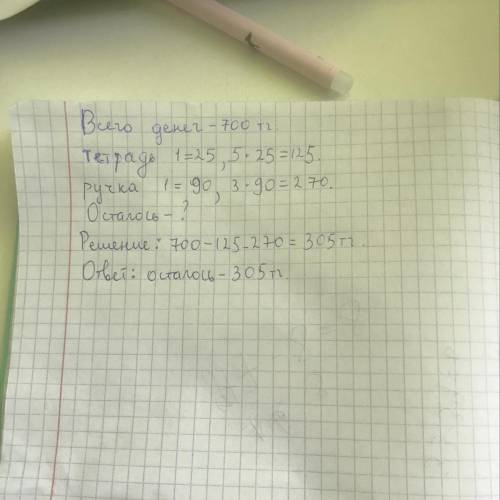 Всего денег - 700 тг.
тетрадь 1=25, 5·25=125.
ручка 1=90, 3·90=270.
Осталось - ?
Решение: 700-125-270=305тг.
Ответ: осталось - 305тг.